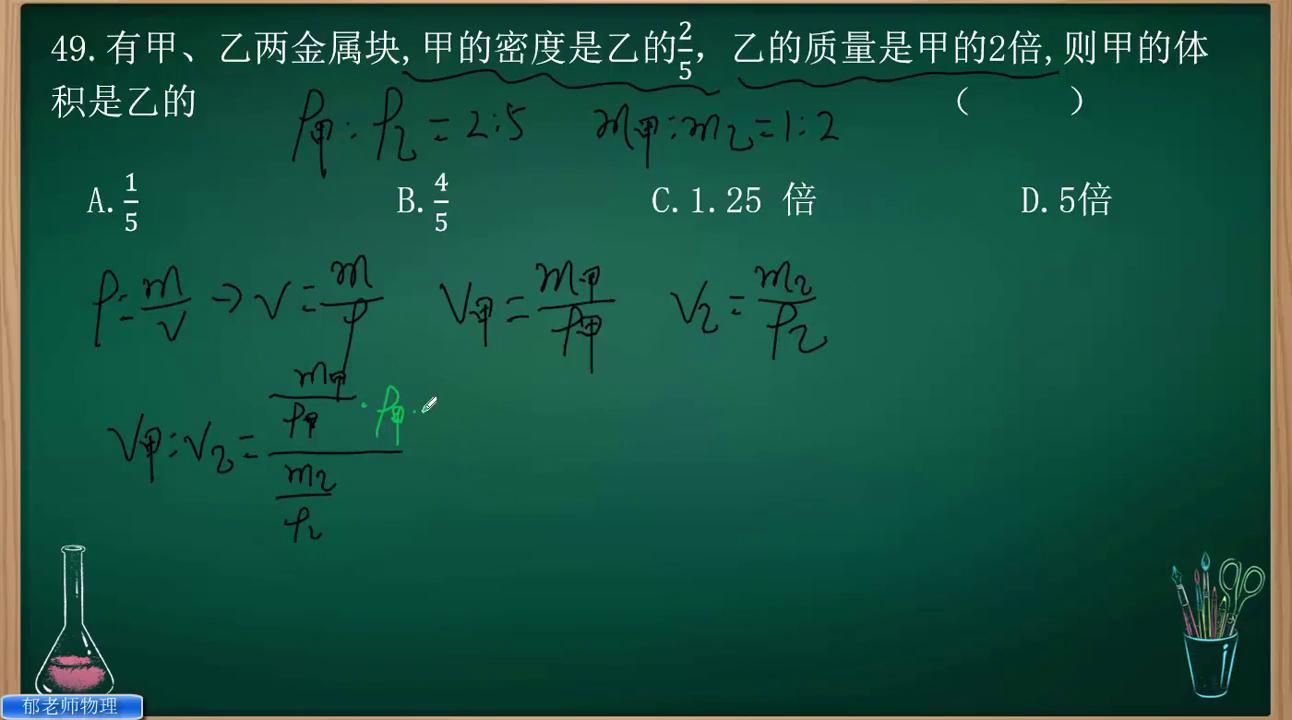 49.有甲、乙两金属块,甲的密度是乙的2/5，乙的质量是甲的2倍,则甲的体
积是乙的 （ ）
ρ甲:ρ乙=2:5 m甲:m乙=1:2
A.1/5 B.4/5 C.1.25 倍 D.5倍
ρ=m/V→V=m/ρ V甲=m甲/ρ甲 V乙=m乙/ρ乙
V甲:V乙=(m甲/ρ甲·ρ甲·)/(m乙/ρ乙)
郁老师物理